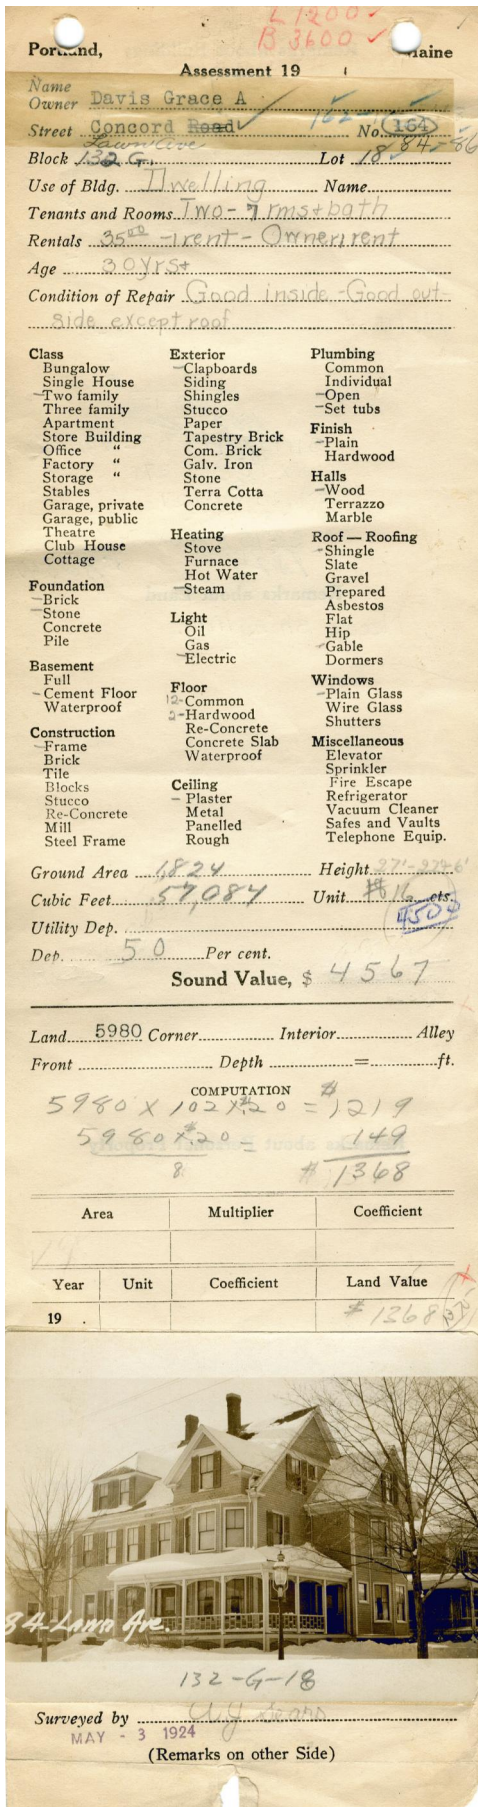 L 1200 ✓
B 3600 ✓
Portland, Maine
Assessment 19
Name
Owner Davis Grace A
Street Concord Road No. 164
Lawn Ave 84-86
Block 132 G. Lot 18
Use of Bldg. Dwelling Name
Tenants and Rooms Two-7 rms+bath
Rentals 35.00 -1 rent- Owner 1 rent
Age 30 yrs+
Condition of Repair Good inside-Good out-
side except roof
Class
Bungalow
Single House
-Two family
Three family
Apartment
Store Building
Office "
Factory "
Storage "
Stables
Garage, private
Garage, public
Theatre
Club House
Cottage
Foundation
-Brick
-Stone
Concrete
Pile
Basement
Full
-Cement Floor
Waterproof
Construction
-Frame
Brick
Tile
Blocks
Stucco
Re-Concrete
Mill
Steel Frame
Exterior
-Clapboards
Siding
Shingles
Stucco
Paper
Tapestry Brick
Com. Brick
Galv. Iron
Stone
Terra Cotta
Concrete
Heating
Stove
Furnace
Hot Water
-Steam
Light
Oil
Gas
-Electric
Floor
12-Common
2-Hardwood
Re-Concrete
Concrete Slab
Waterproof
Ceiling
-Plaster
Metal
Panelled
Rough
Plumbing
Common
Individual
-Open
-Set tubs
Finish
-Plain
Hardwood
Halls
-Wood
Terrazzo
Marble
Roof — Roofing
-Shingle
Slate
Gravel
Prepared
Asbestos
Flat
Hip
-Gable
Dormers
Windows
-Plain Glass
Wire Glass
Shutters
Miscellaneous
Elevator
Sprinkler
Fire Escape
Refrigerator
Vacuum Cleaner
Safes and Vaults
Telephone Equip.
Ground Area 1,824 Height
Cubic Feet 57,084 Unit $ .16 cts.
Utility Dep. 4504
Dep. 50 Per cent.
Sound Value, $ 4567
Land 5980 Corner Interior Alley
Front Depth = ft.
COMPUTATION
5980 X 102 X $.20 = $1219
5980 X $.20 = 149
8 $1368
Area Multiplier Coefficient
Year Unit Coefficient Land Value
19 . $1368
84-Lawn Ave.
132-G-18
Surveyed by
MAY - 3 1924
(Remarks on other Side)